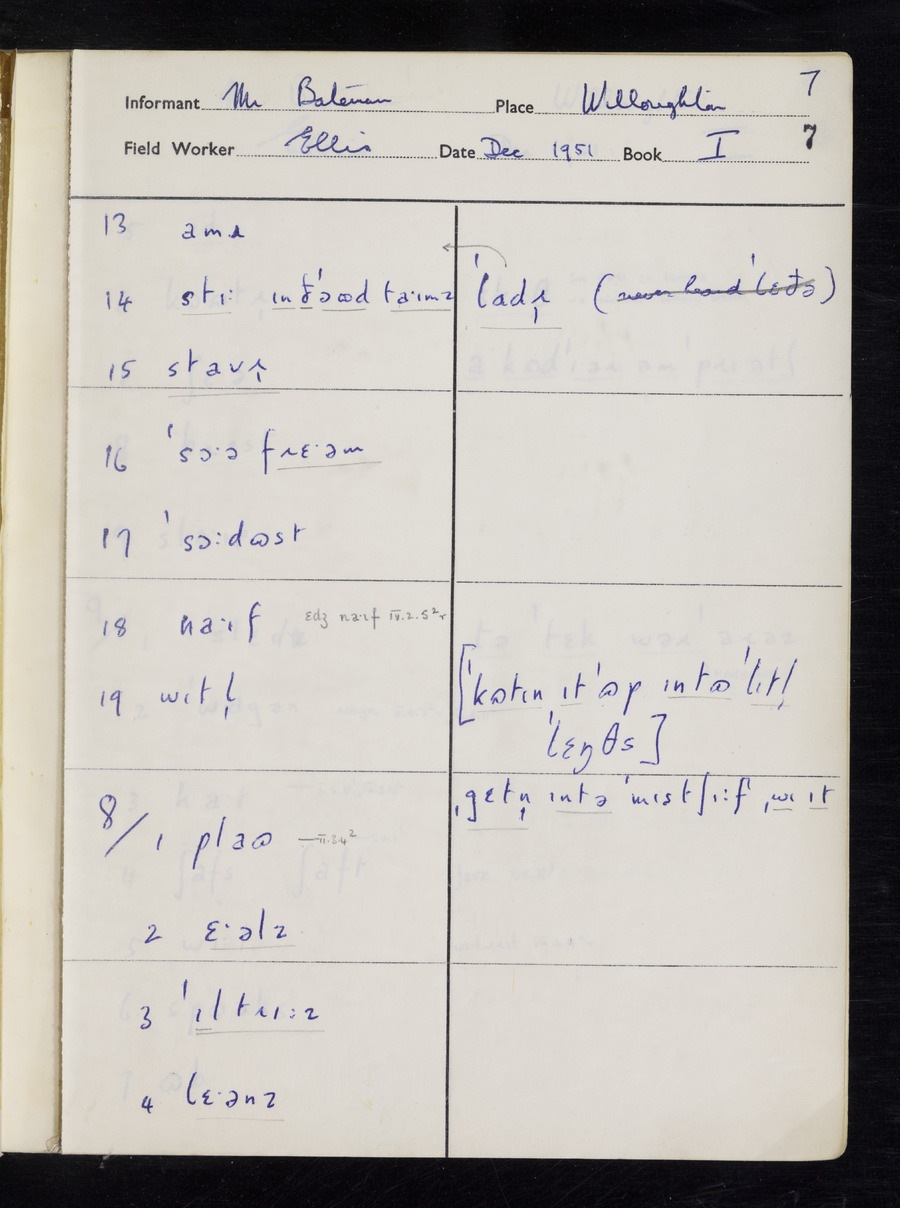 7
Informant Mr Bateman Place Willoughton
Field Worker Ellis Date Dec 1951 Book I 7
13 amɹ
14 stɪ: ɪn ðˈəɷd ta:ɪmz ˈladɪ̩ (never heard ˈlɛðə)
15 stavɪ̩
16 ˈsɔ:ə fɹɛ:əm
17 ˈsɔ:dɷst
18 na:ɪf ɛdʒ na:ɪf IV.2.5²r
19 wɪtl̩ [ˈkɷtɪn ɪt ˈɷp ɪntə ˈlɪtl̩
ˈlɛŋθs]
ˌgɛtn̩ ɪntə ˈmɪstʃi:f ˌwɪ ɪt
8/1 plaɷ —II.3.4²
2 ɛ·əlz
3 ˈɪltɹɪ:z
4 lɛ·ənz